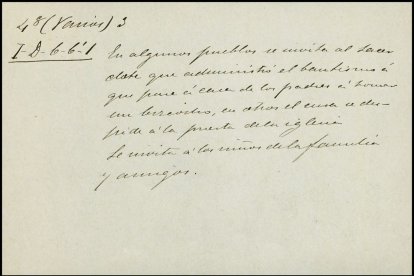 48 (Varios) 3
I-D-6-6-1
En algunos pueblos se invita al sacer
dote que administró el bautismo á
que pase á casa de los padres á tomar
un bizcocho, en otros el cura se des-
pide á la puerta de la iglesia
Se invita á los niños de la familia
y amigos.